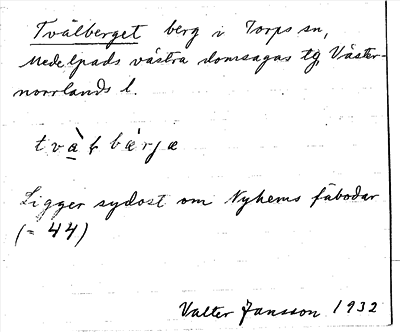 Tvälberget berg i Torps sn,
Medelpads västra domsagas tg, Väster-
norrlands l.
Ligger sydost om Nyhems fäbodar
(= 44)
Valter Jansson 1932